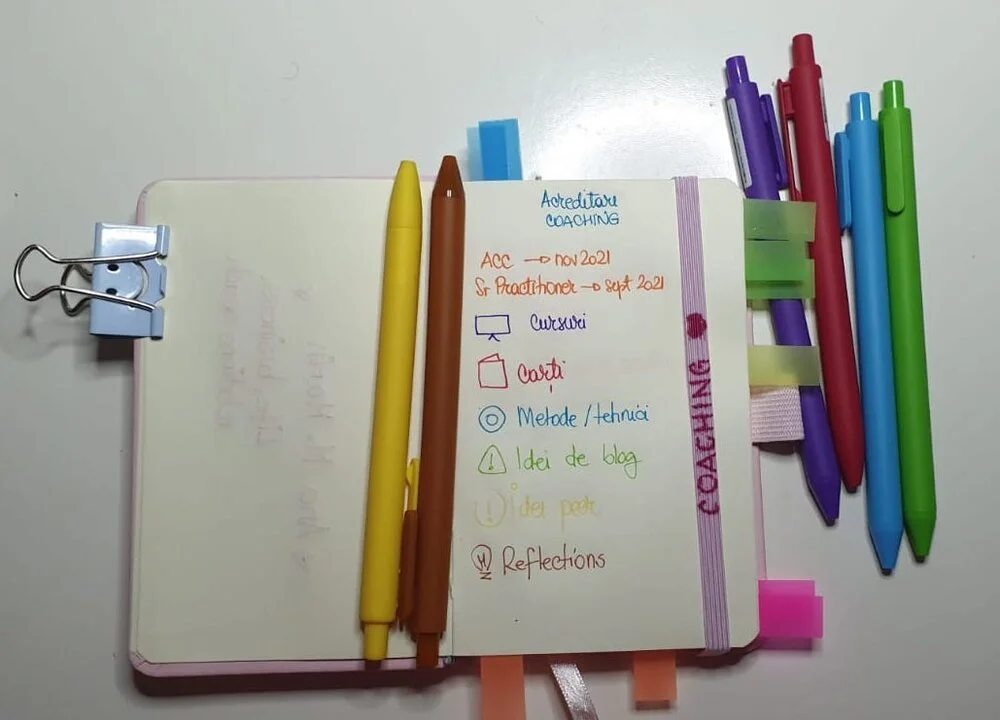 Acreditare
COACHING
ACC → nov 2021
Sr Practitioner → sept 2021
Cursuri
Cărți
Metode / tehnici
Idei de blog
Idei peer
Reflections
COACHING